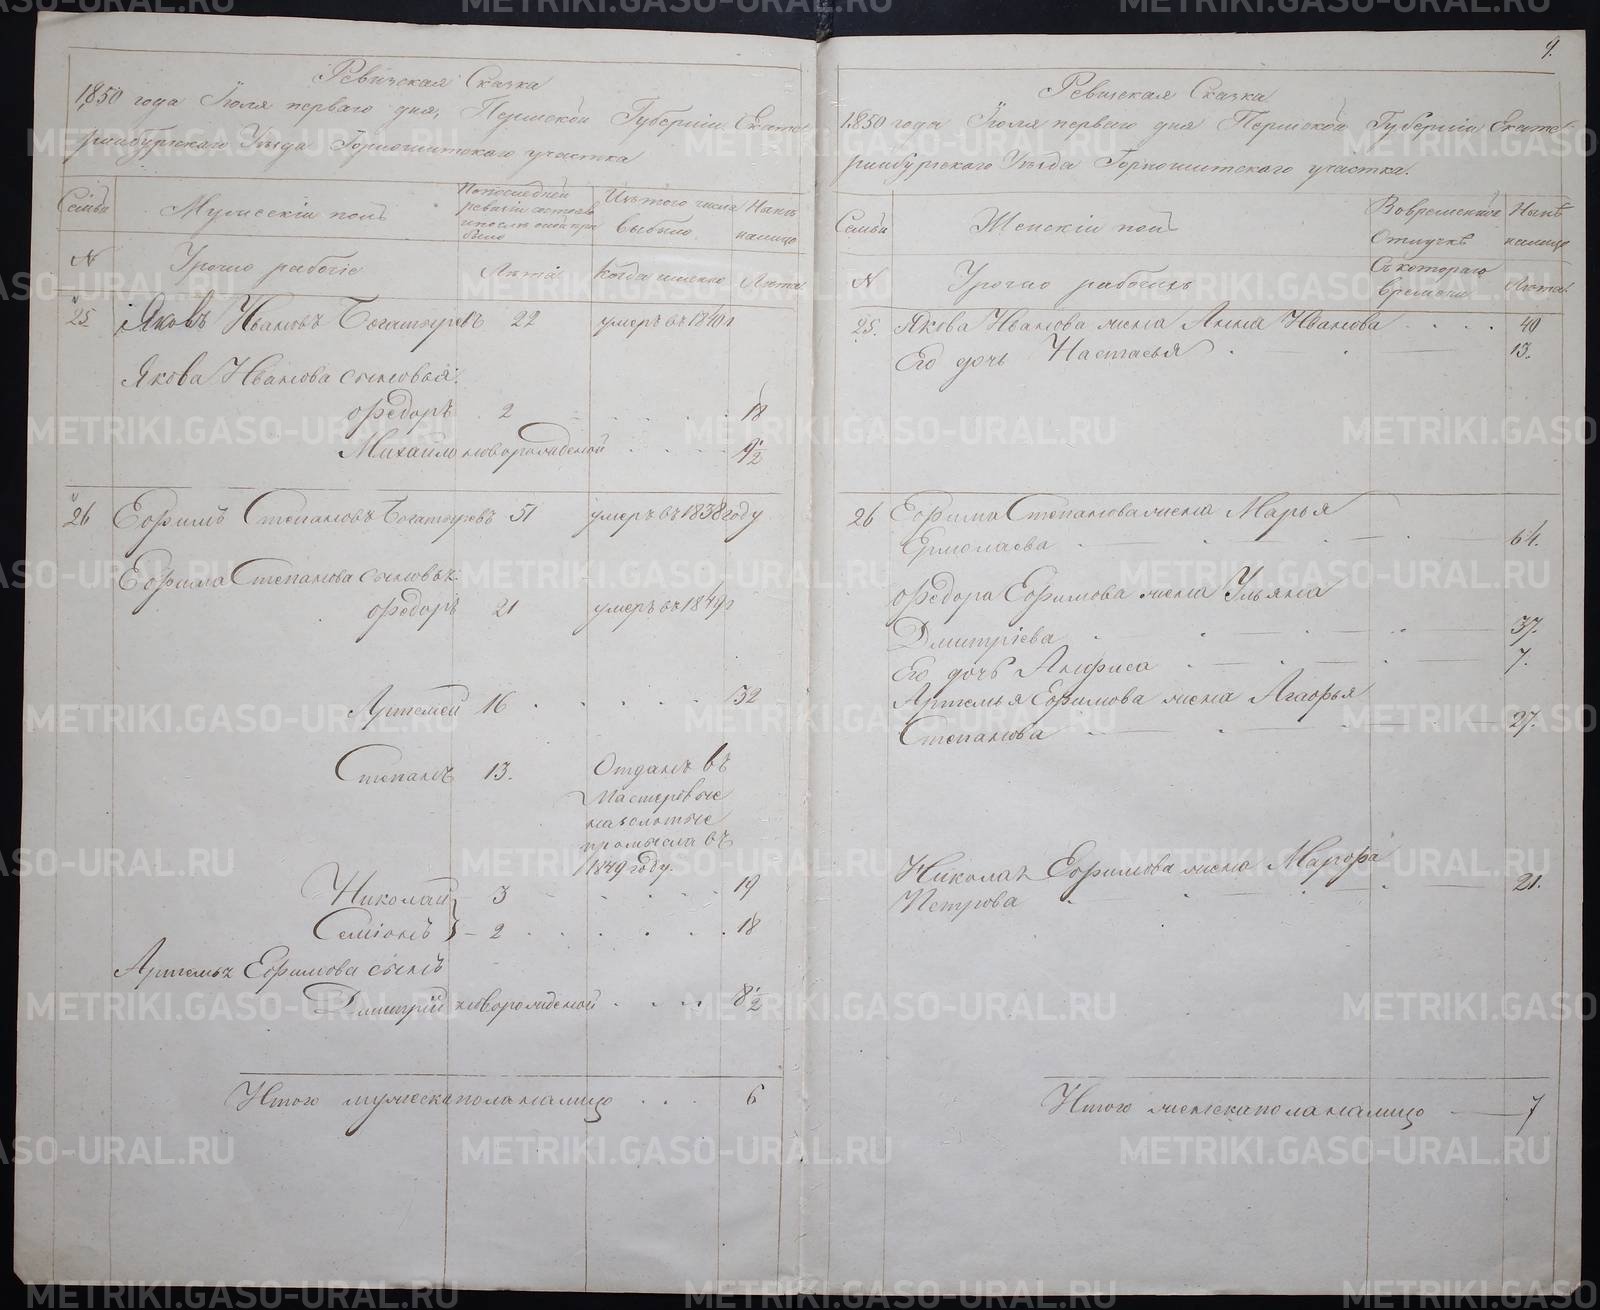 Ревизская Сказка
1850 года Іюля перваго дня, Пермской Губерніи Екате-
ринбургскаго Уѣзда Горнощитскаго участка
Семьи
Мужескій полъ
По последней
ревизіи состояло
и после оной при
было
Изъ того числа
выбыло
Нынѣ
налицо
№
Урочно рабочіе
Лѣта
Когда именно
Лѣта
25
Яковъ Ивановъ Богатыревъ 22 умеръ въ 1840 г
Якова Иванова сыновья:
Ѳедоръ 2 18
Михайло новорожденной 9 1/2
26
Ефимъ Степановъ Богатыревъ 51 умеръ въ 1838 году
Ефима Степанова сыновья:
Ѳедоръ 21 умеръ въ 1849 г
Артемей 16 32
Степанъ 13. Отданъ въ
Мастеровые
на золотые
промысла въ
1849 году.
Николай 3 19
Семіонъ 2 18
Артемья Ефимова сынъ
Дмитрій новорожденной 8 1/2
Итого мужеска пола налицо 6
9.
Ревизская Сказка
1850 года Іюля перваго дня Пермской Губерніи Екате-
ринбургскаго Уѣзда Горнощитскаго участка.
Семьи
Женскій полъ
Во временной
Отлучкѣ
Нынѣ
налицо
№
Урочно рабочихъ
Съ котораго
времени
Лѣта
25. Якова Иванова жена Анна Иванова 40
Его дочь Настасья 13.
26 Ефима Степанова жена Марья
Ермолаева 64.
Ѳедора Ефимова жена Ульяна
Дмитріева 37.
Его дочь Анфиса 7.
Артемья Ефимова жена Агафья
Степанова 27.
Николая Ефимова жена Марфа
Петрова 21.
Итого женска пола налицо 7
METRIKI.GASO-URAL.RU